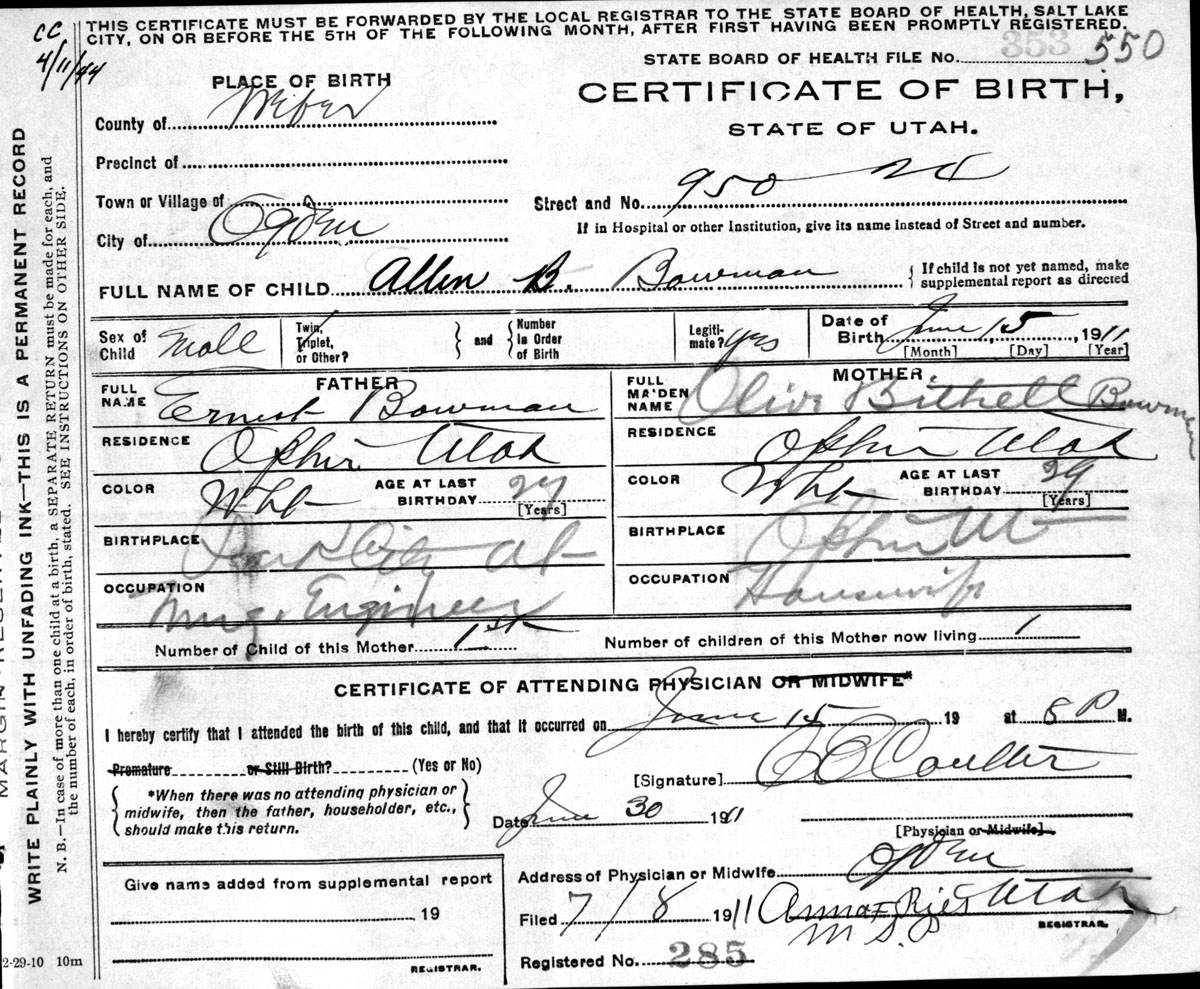 CC
4/11/44
THIS CERTIFICATE MUST BE FORWARDED BY THE LOCAL REGISTRAR TO THE STATE BOARD OF HEALTH, SALT LAKE
CITY, ON OR BEFORE THE 5TH OF THE FOLLOWING MONTH, AFTER FIRST HAVING BEEN PROMPTLY REGISTERED.
353
STATE BOARD OF HEALTH FILE No. 550
PLACE OF BIRTH
CERTIFICATE OF BIRTH,
STATE OF UTAH.
County of Weber
Precinct of
Town or Village of
Street and No. 950
City of Ogden
If in Hospital or other Institution, give its name instead of Street and number.
FULL NAME OF CHILD Allen B. Bowman
{ If child is not yet named, make
supplemental report as directed
Sex of Child Male
Twin, Triplet, or Other? } and { Number in Order of Birth
Legiti-mate? Yes
Date of Birth June 15, 1911
[Month] [Day] [Year]
FATHER
FULL NAME Ernest Bowman
MOTHER
FULL MAIDEN NAME Olive Bithell Bowman
RESIDENCE Ophir Utah
RESIDENCE Ophir Utah
COLOR Wht AGE AT LAST BIRTHDAY [Years]
COLOR Wht AGE AT LAST BIRTHDAY 29 [Years]
BIRTHPLACE Park City Ut
BIRTHPLACE Ophir Ut
OCCUPATION Engineer
OCCUPATION Housewife
Number of Child of this Mother 1st
Number of children of this Mother now living 1
CERTIFICATE OF ATTENDING PHYSICIAN OR MIDWIFE*
I hereby certify that I attended the birth of this child, and that it occurred on June 15 19 at 8 P M.
Premature or Still Birth? (Yes or No)
[Signature] Coulter
{ *When there was no attending physician or
midwife, then the father, householder, etc.,
should make this return. }
Date June 30 1911
[Physician or Midwife]
Address of Physician or Midwife Ogden
Utah
Give name added from supplemental report
19
REGISTRAR.
Filed 7/8 1911 Anna Ries
REGISTRAR.
Registered No. 285
2-29-10 10m
WRITE PLAINLY WITH UNFADING INK—THIS IS A PERMANENT RECORD
N. B.—In case of more than one child at a birth, a SEPARATE RETURN must be made for each, and
the number of each, in order of birth, stated. SEE INSTRUCTIONS ON OTHER SIDE.